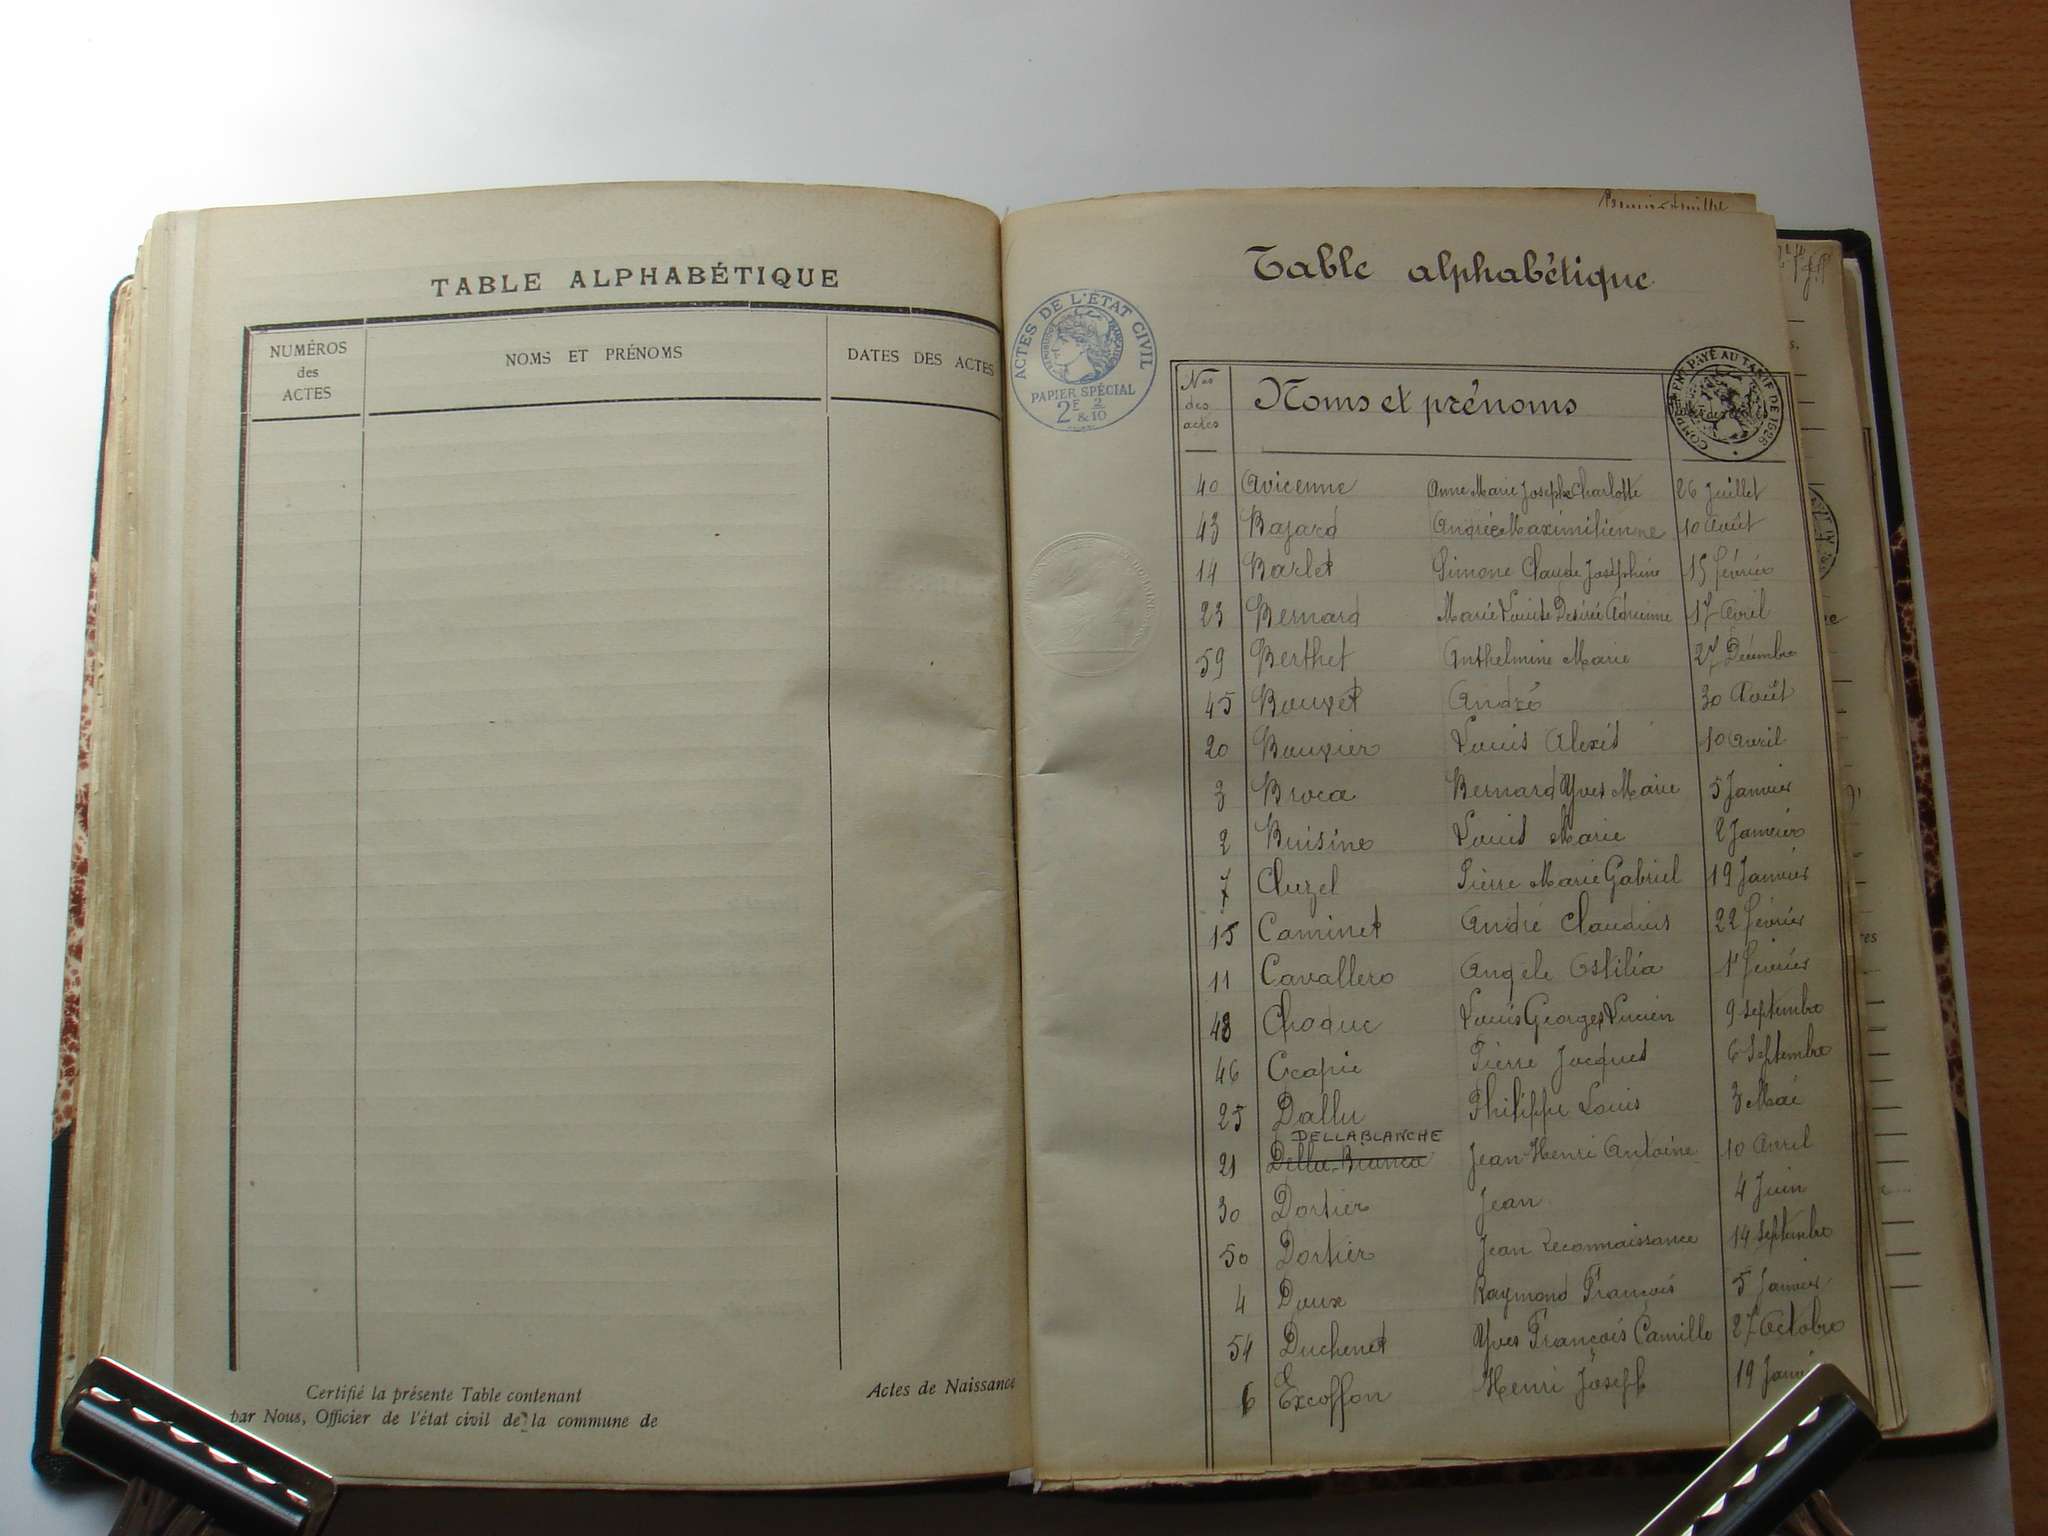 TABLE ALPHABÉTIQUE
NUMÉROS des ACTES NOMS ET PRÉNOMS DATES DES ACTES
Certifié la présente Table contenant Actes de Naissance
par Nous, Officier de l'état civil de la commune de
Table alphabétique
ACTES DE L'ÉTAT CIVIL
PAPIER SPÉCIAL
2F & 2/10
PAYÉ AU TARIF DE 1926
Nos des actes Noms et prénoms
40 Avicenne Anne Marie Josèphe Charlotte 26 Juillet
43 Bajard Andrée Maximilienne 10 Août
14 Barlet Simone Claude Joséphine 15 Février
23 Bernard Marie Louise Désirée Adrienne 17 Avril
59 Berthet Anthelmine Marie 27 Décembre
45 Bouvet André 30 Août
20 Bouvier Louis Alexis 10 Avril
3 Broca Bernard Yves Marie 5 Janvier
2 Buisine Louis Marie 2 Janvier
7 Cluzel Pierre Marie Gabriel 19 Janvier
15 Caminet André Claudius 22 Février
11 Cavallero Angele Astilia 1r Février
48 Choduc Louis Georges Lucien 9 Septembre
46 Crapie Pierre Jacques 6 Septembre
25 Dallu Philippe Louis 3 Mai
DELLABLANCHE
21 Della-Bianca Jean Henri Antoine 10 Avril
30 Dortier Jean 4 Juin
50 Dortier Jean reconnaissance 14 Septembre
4 Doux Raymond François 5 Janvier
54 Duchenet Yves François Camille 27 Octobre
6 Excoffon Henri Joseph 19 Janvi